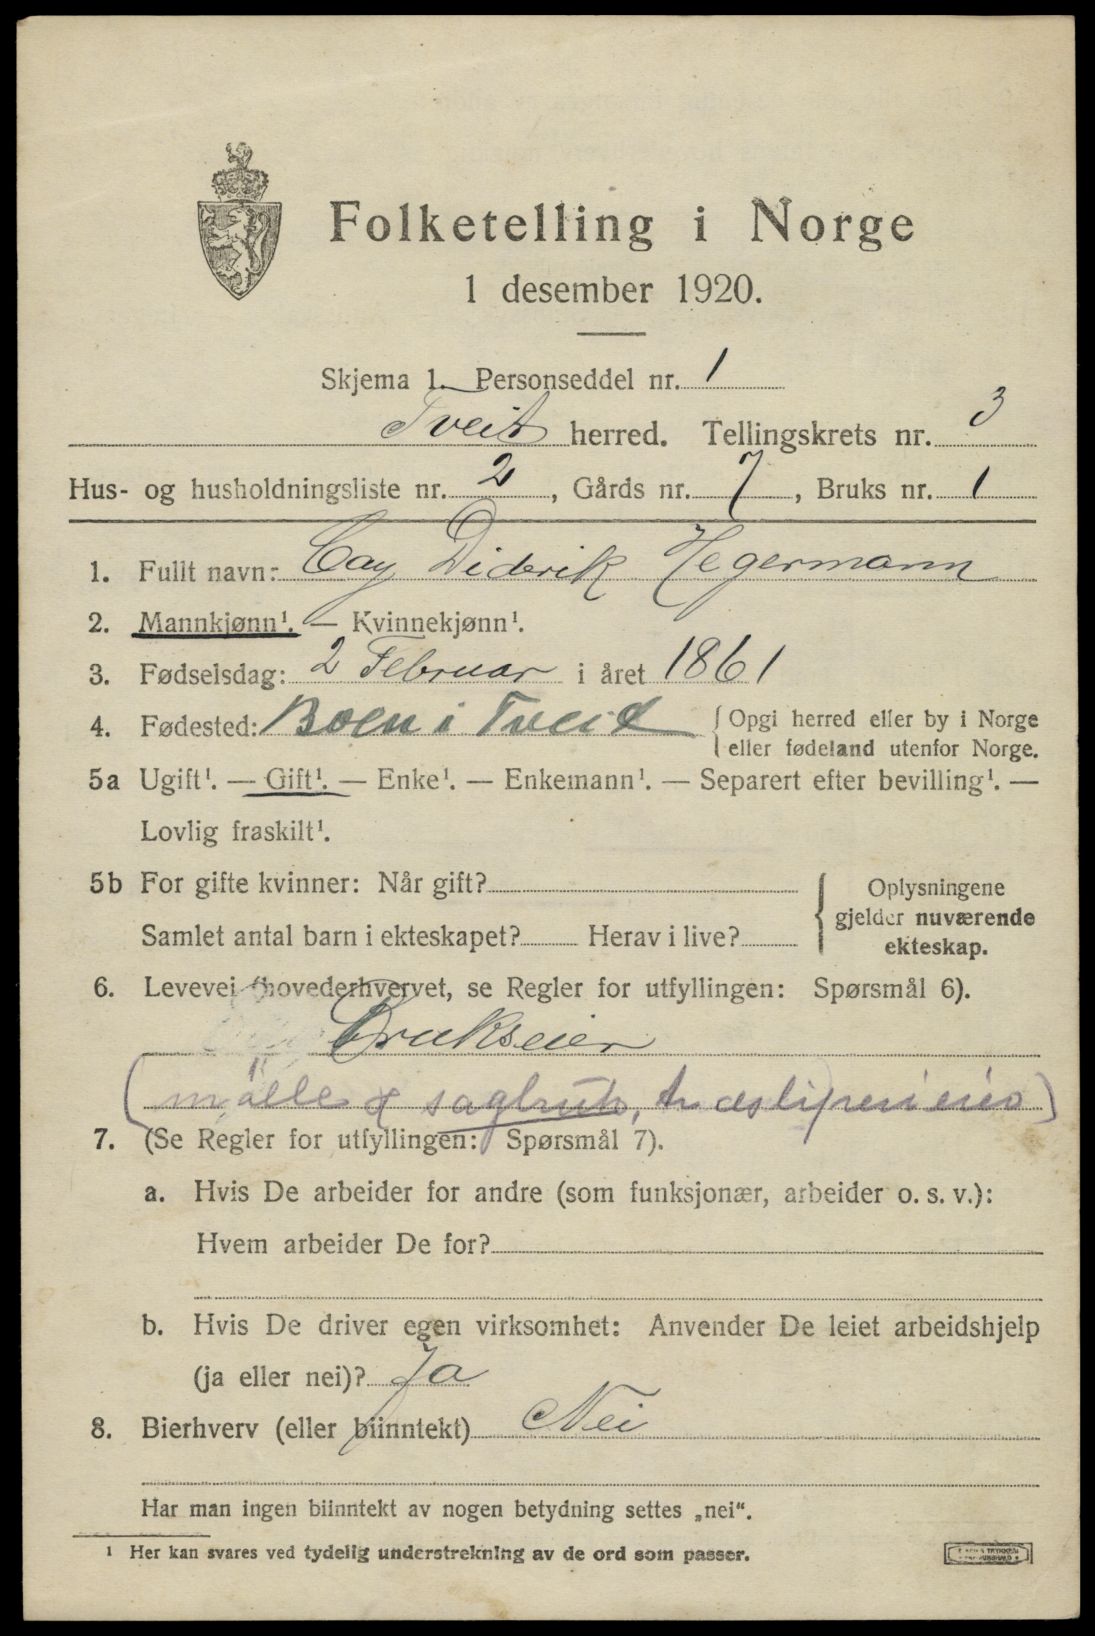 Folketelling i Norge
1 desember 1920.
Skjema 1. Personseddel nr. 1
Tveit herred. Tellingskrets nr. 3
Hus- og husholdningsliste nr. 2, Gårds nr. 7, Bruks nr. 1
1. Fullt navn: Cay Diderik Hegermann
2. Mannkjønn¹. — Kvinnekjønn¹.
3. Fødselsdag: 2 Februar i året 1861
4. Fødested: Boen i Tveit { Opgi herred eller by i Norge
eller fødeland utenfor Norge.
5a Ugift¹. — Gift¹. — Enke¹. — Enkemann¹. — Separert efter bevilling¹. —
Lovlig fraskilt¹.
5b For gifte kvinner: Når gift?
Samlet antal barn i ekteskapet? Herav i live?
{ Oplysningene
gjelder nuværende
ekteskap.
6. Levevei (hovederhvervet, se Regler for utfyllingen: Spørsmål 6).
Brukseier
(mölle & sagbruk, træsliperi eier)
7. (Se Regler for utfyllingen: Spørsmål 7).
a. Hvis De arbeider for andre (som funksjonær, arbeider o. s. v.):
Hvem arbeider De for?
b. Hvis De driver egen virksomhet: Anvender De leiet arbeidshjelp
(ja eller nei)? Ja
8. Bierhverv (eller biinntekt) Nei
Har man ingen biinntekt av nogen betydning settes „nei“.
¹ Her kan svares ved tydelig understrekning av de ord som passer.